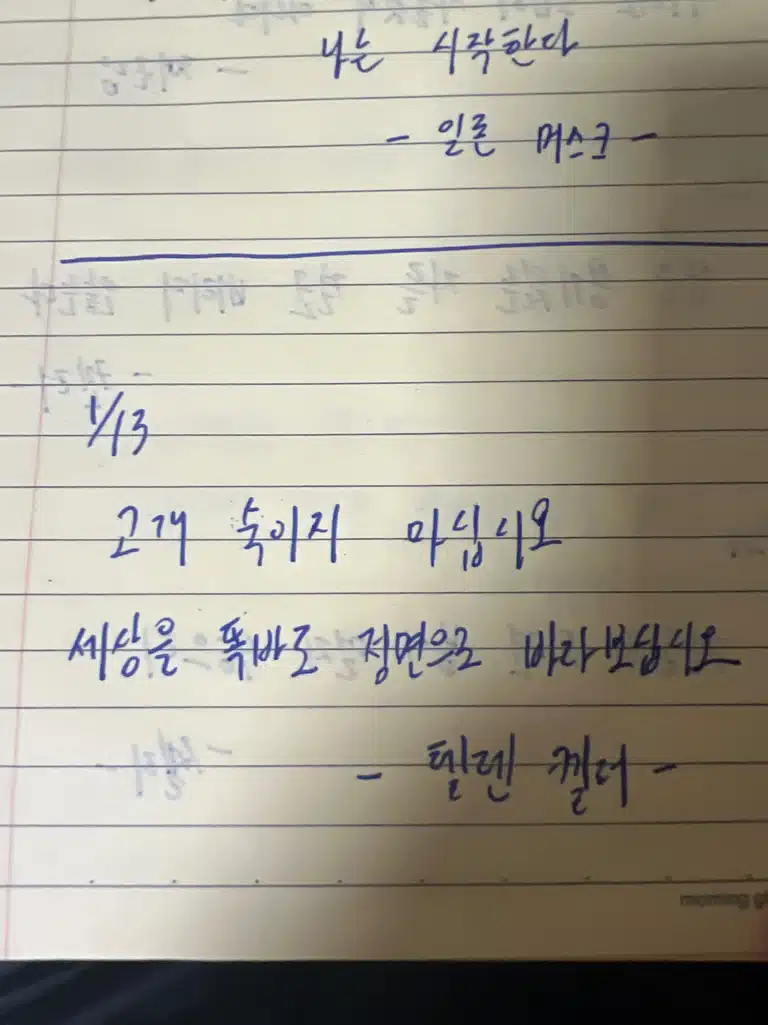 나는 시작한다
- 일론 머스크 -
1/13
고개 숙이지 마십시오
세상을 똑바로 정면으로 바라보십시오
- 텔렌 켈러 -
morning